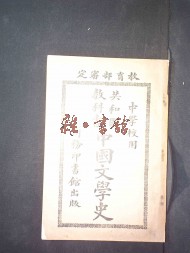 教育部審定
中學校用
共和國
教科書
中國文學史
商務印書館出版
雅·書館